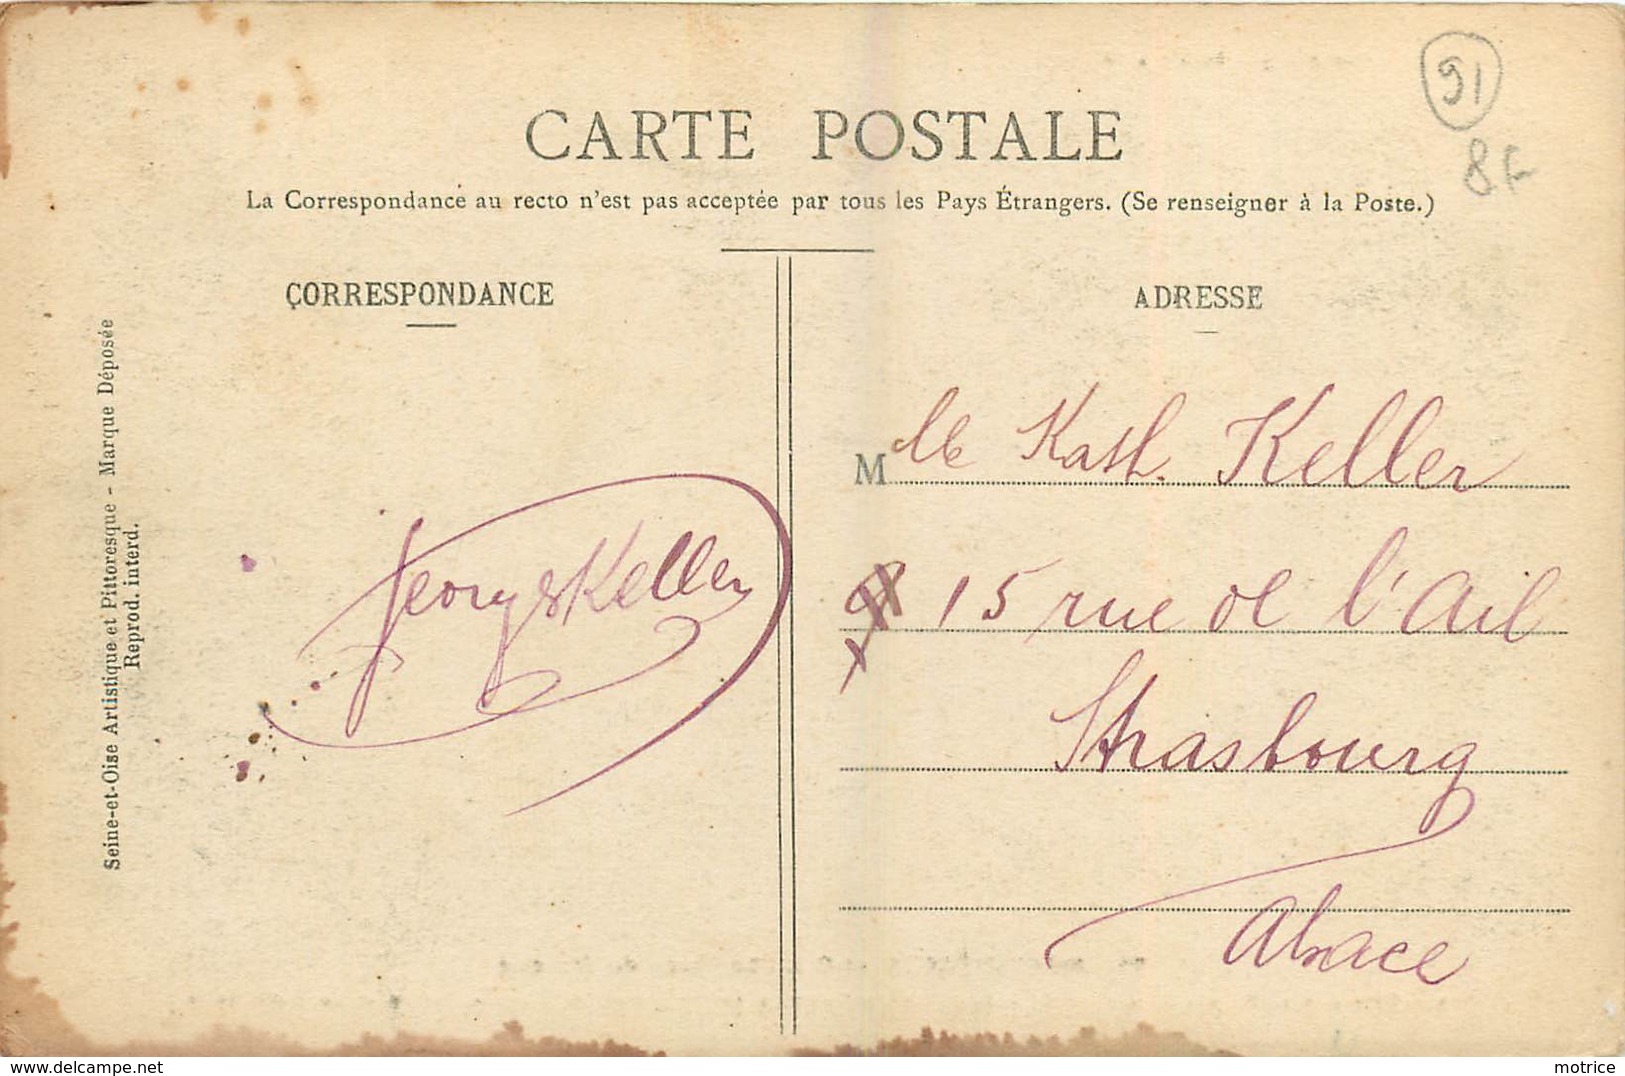 91
8F
CARTE POSTALE
La Correspondance au recto n'est pas acceptée par tous les Pays Étrangers. (Se renseigner à la Poste.)
CORRESPONDANCE
ADRESSE
Seine-et-Oise Artistique et Pittoresque - Marque Déposée
Reprod. interd.
Georges Keller
Mlle Kath. Keller
15 rue de l'Ail
Strasbourg
Alsace
www.delcampe.net
motrice